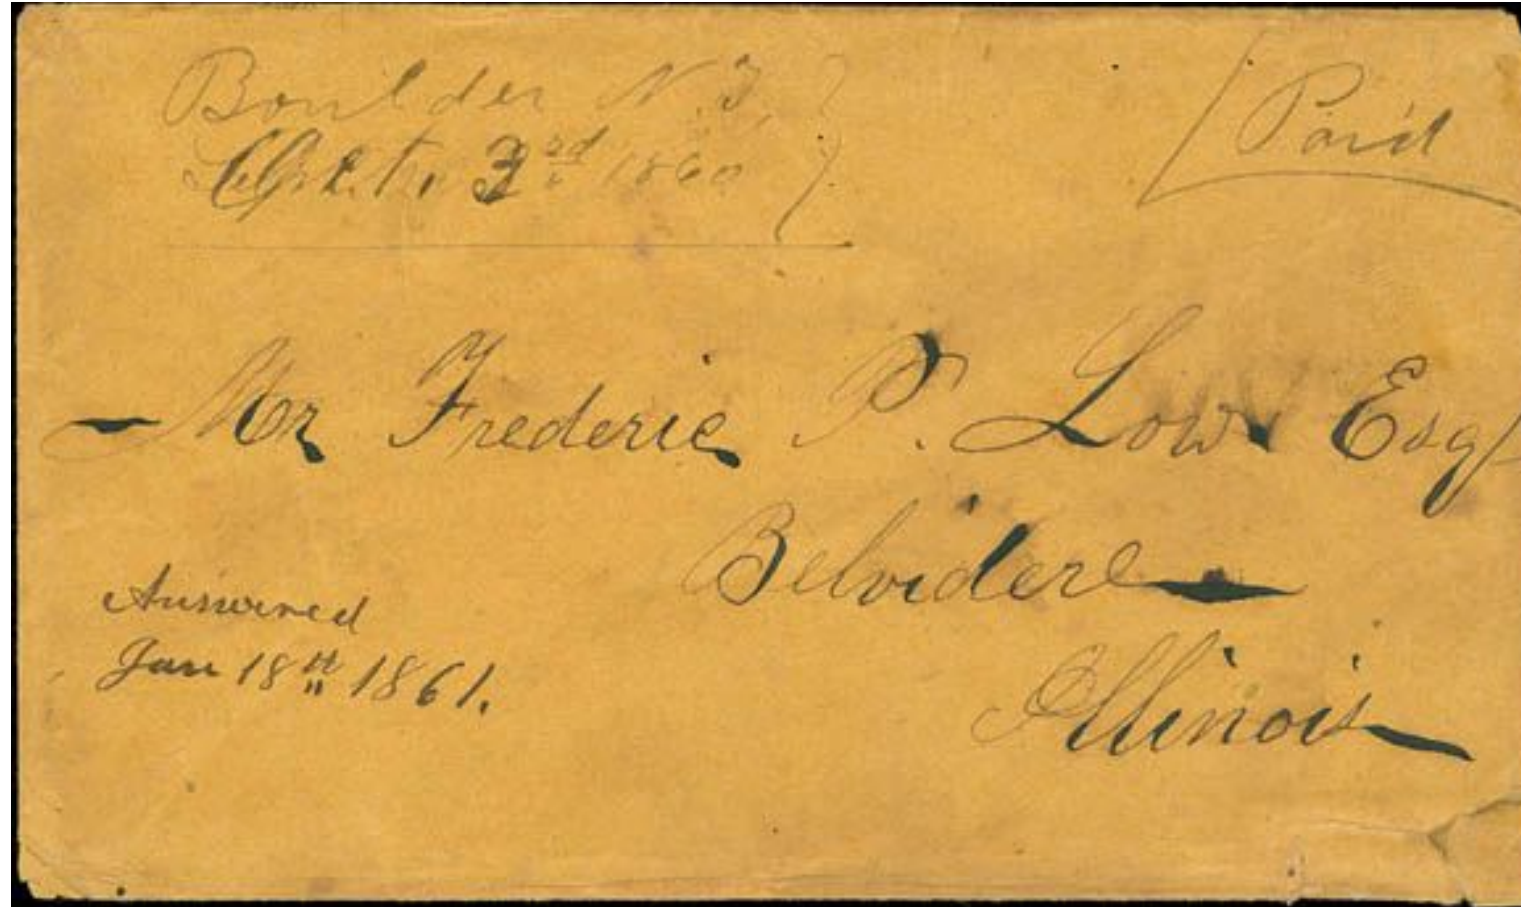 Boulder N.T.
Sept. 3rd 1860
Paid
Mr Frederic P. Low Esq
Belvidere
Illinois
Answered
Jan 18th 1861.